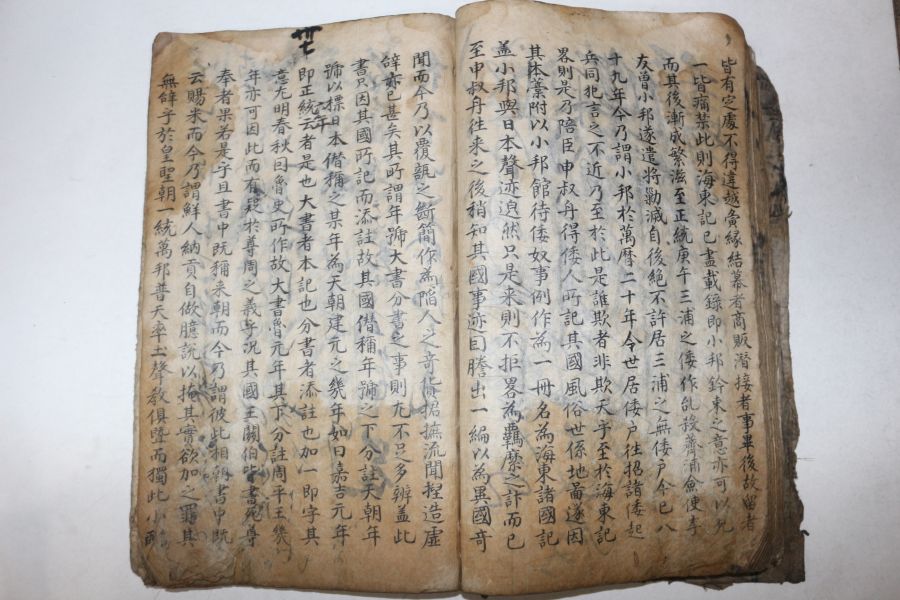 皆有定處不得違越夤緣結幕者商販潛接者事畢後故留者
一皆痛禁此則海東記已盡載錄即小邦鈐束之意亦可以見
而其後漸成繁滋至正統庚午三浦之倭作乱殺薺浦僉使李
友曾小邦遂遣將勦滅自後絶不許居三浦之無倭戶今已八
十九年今乃謂小邦於萬曆二十年令世居倭戶往招諸倭起
兵同犯言之不近乃至於此是誰欺者非欺天乎至於海東記
畧則是乃陪臣申叔舟得倭人所記其國風俗世係地啚遂因
其本藁附以小邦館待倭奴事例作為一冊名為海東諸國記
盖小邦與日本聲迹迥然只是来則不拒畧為羈縻之計而已
至申叔舟往来之後稍知其國事迹因謄出一編以為異國奇
卅七
聞而今乃以覆瓿之斷簡作為陷人之奇貨捃摭流聞捏造虛
辭亦已甚矣其所謂年號大書分書之事則尤不足多辨盖此
書只因其國所記而添註故其國僭稱年號之下分註天朝年
號以標日本僭稱之某年為天朝建元之幾年如曰嘉吉元年
即正統年云者是也大書者本記也分書者添註也加一即字其
意尤明春秋因魯史所作故大書魯元年其下分註周平王幾
年亦可因此而有疑於尊周之義乎况其國王關伯皆書死尊
奉者果若是乎且書中既稱来朝而今乃謂彼此相朝書中既
云賜米而今乃謂鮮人納貢自做臆說以掩其實欲加之罪其
無辭乎於皇聖朝一統萬邦普天率土聲教俱曁而獨此小邦